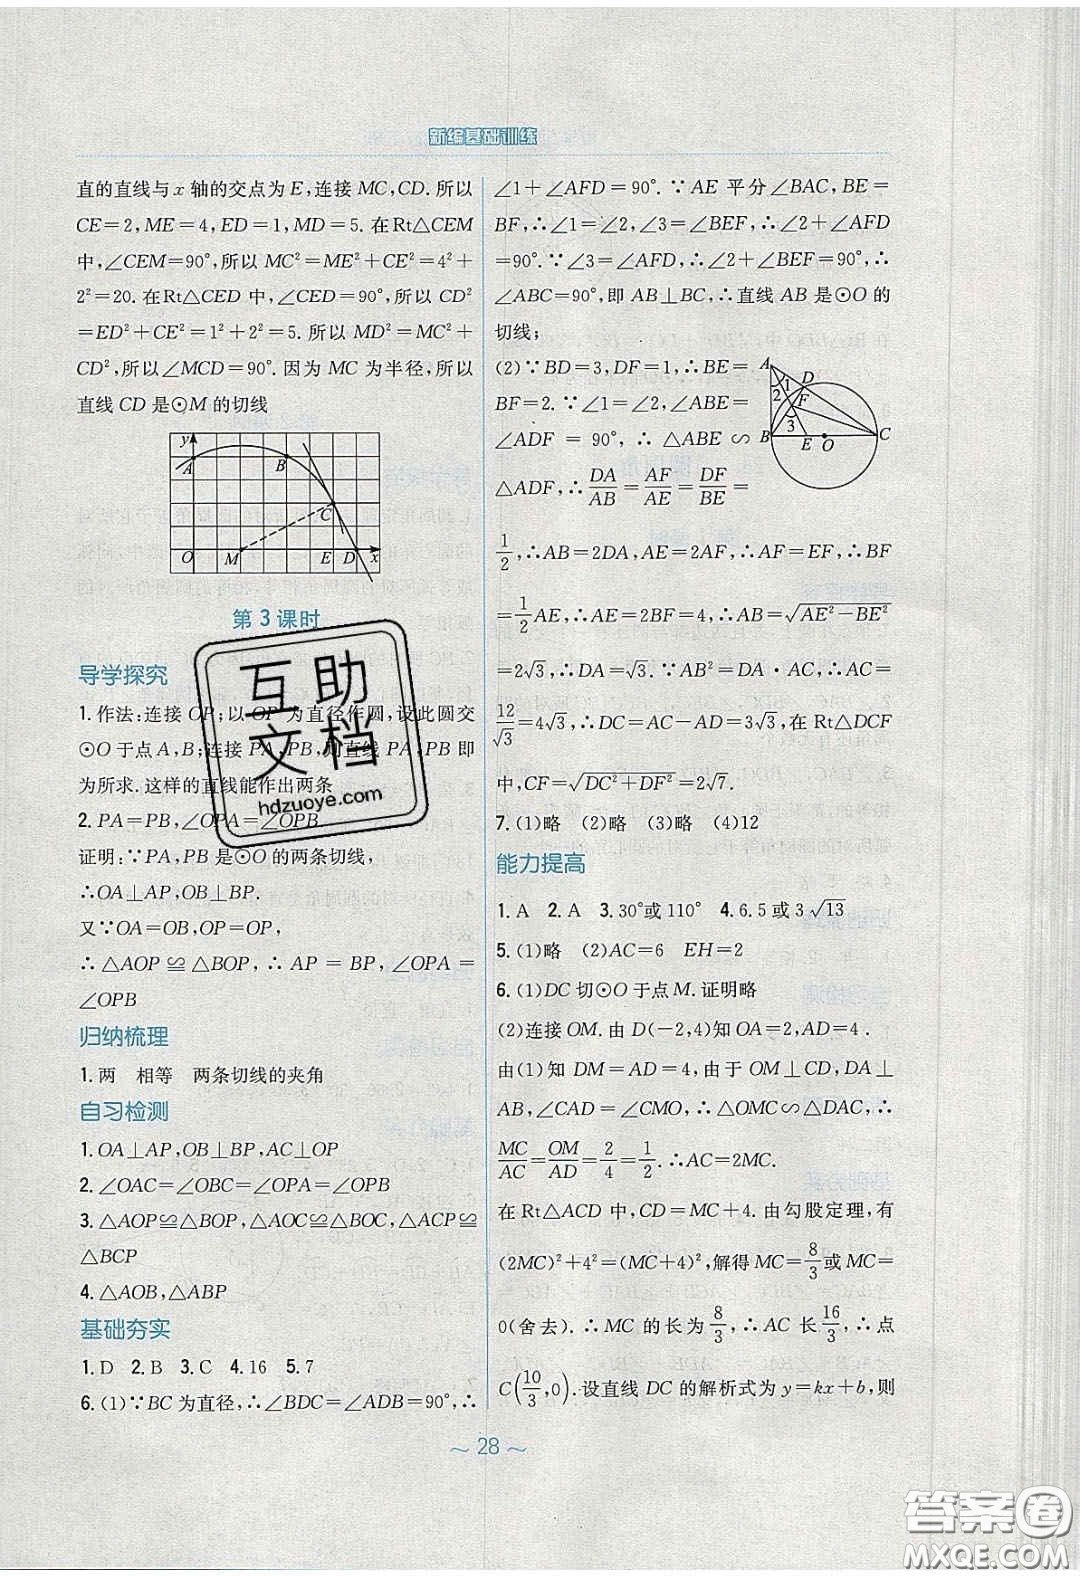 新编基础训练
直的直线与 x 轴的交点为 E,连接 MC,CD. 所以
CE=2,ME=4,ED=1,MD=5. 在Rt△CEM
中,∠CEM=90°,所以 MC²=ME²+CE²=4²+
2²=20. 在Rt△CED 中,∠CED=90°,所以 CD²
=ED²+CE²=1²+2²=5. 所以 MD²=MC²+
CD²,所以∠MCD=90°. 因为 MC 为半径,所以
直线 CD 是⊙M 的切线
y
A
B
C
O
M
E
D
x
第 3 课时
导学探究
1. 作法:连接 OP;以 OP 为直径作圆,设此圆交
⊙O 于点 A,B;连接 PA,PB,则直线 PA,PB 即
为所求. 这样的直线能作出两条
2. PA=PB,∠OPA=∠OPB
证明:∵PA,PB 是⊙O 的两条切线,
∴OA⊥AP,OB⊥BP.
又∵OA=OB,OP=OP,
∴△AOP≌△BOP,∴AP=BP,∠OPA=
∠OPB
归纳梳理
1. 两 相等 两条切线的夹角
自习检测
1. OA⊥AP,OB⊥BP,AC⊥OP
2. ∠OAC=∠OBC=∠OPA=∠OPB
3. △AOP≌△BOP,△AOC≌△BOC,△ACP≌
△BCP
4. △AOB,△ABP
基础夯实
1. D 2. B 3. C 4. 16 5. 7
6. (1)∵BC 为直径,∴∠BDC=∠ADB=90°,∴
∠1+∠AFD=90°. ∵AE 平分∠BAC,BE=
BF,∴∠1=∠2,∠3=∠BEF,∴∠2+∠AFD
=90°. ∵∠3=∠AFD,∴∠2+∠BEF=90°,∴
∠ABC=90°,即 AB⊥BC,∴直线 AB 是⊙O 的
切线;
(2)∵BD=3,DF=1,∴BE=
BF=2. ∵∠1=∠2,∠ABE=
∠ADF=90°,∴△ABE∽
△ADF,∴DA/AB=AF/AE=DF/BE=
A
1
D
2
F
3
B
E
O
C
1/2,∴AB=2DA,AE=2AF,∴AF=EF,∴BF
=1/2AE,∴AE=2BF=4,∴AB=√(AE²-BE²)
=2√3,∴DA=√3. ∵AB²=DA·AC,∴AC=
12/√3=4√3,∴DC=AC-AD=3√3,在 Rt△DCF
中,CF=√(DC²+DF²)=2√7.
7. (1)略 (2)略 (3)略 (4)12
能力提高
1. A 2. A 3. 30°或 110° 4. 6.5 或 3√13
5. (1)略 (2)AC=6 EH=2
6. (1)DC 切⊙O 于点 M. 证明略
(2)连接 OM. 由 D(-2,4)知 OA=2,AD=4.
由(1)知 DM=AD=4,由于 OM⊥CD,DA⊥
AB,∠CAD=∠CMO,∴△OMC∽△DAC,∴
MC/AC=OM/AD=2/4=1/2. ∴AC=2MC.
在 Rt△ACD 中,CD=MC+4. 由勾股定理,有
(2MC)²+4²=(MC+4)²,解得 MC=8/3或 MC=
0(舍去). ∴MC 的长为8/3,∴AC 长16/3,∴点
C(10/3,0). 设直线 DC 的解析式为 y=kx+b,则
~ 28 ~
互助
文档
hdzuoye.com
答案卷
MXQE.COM